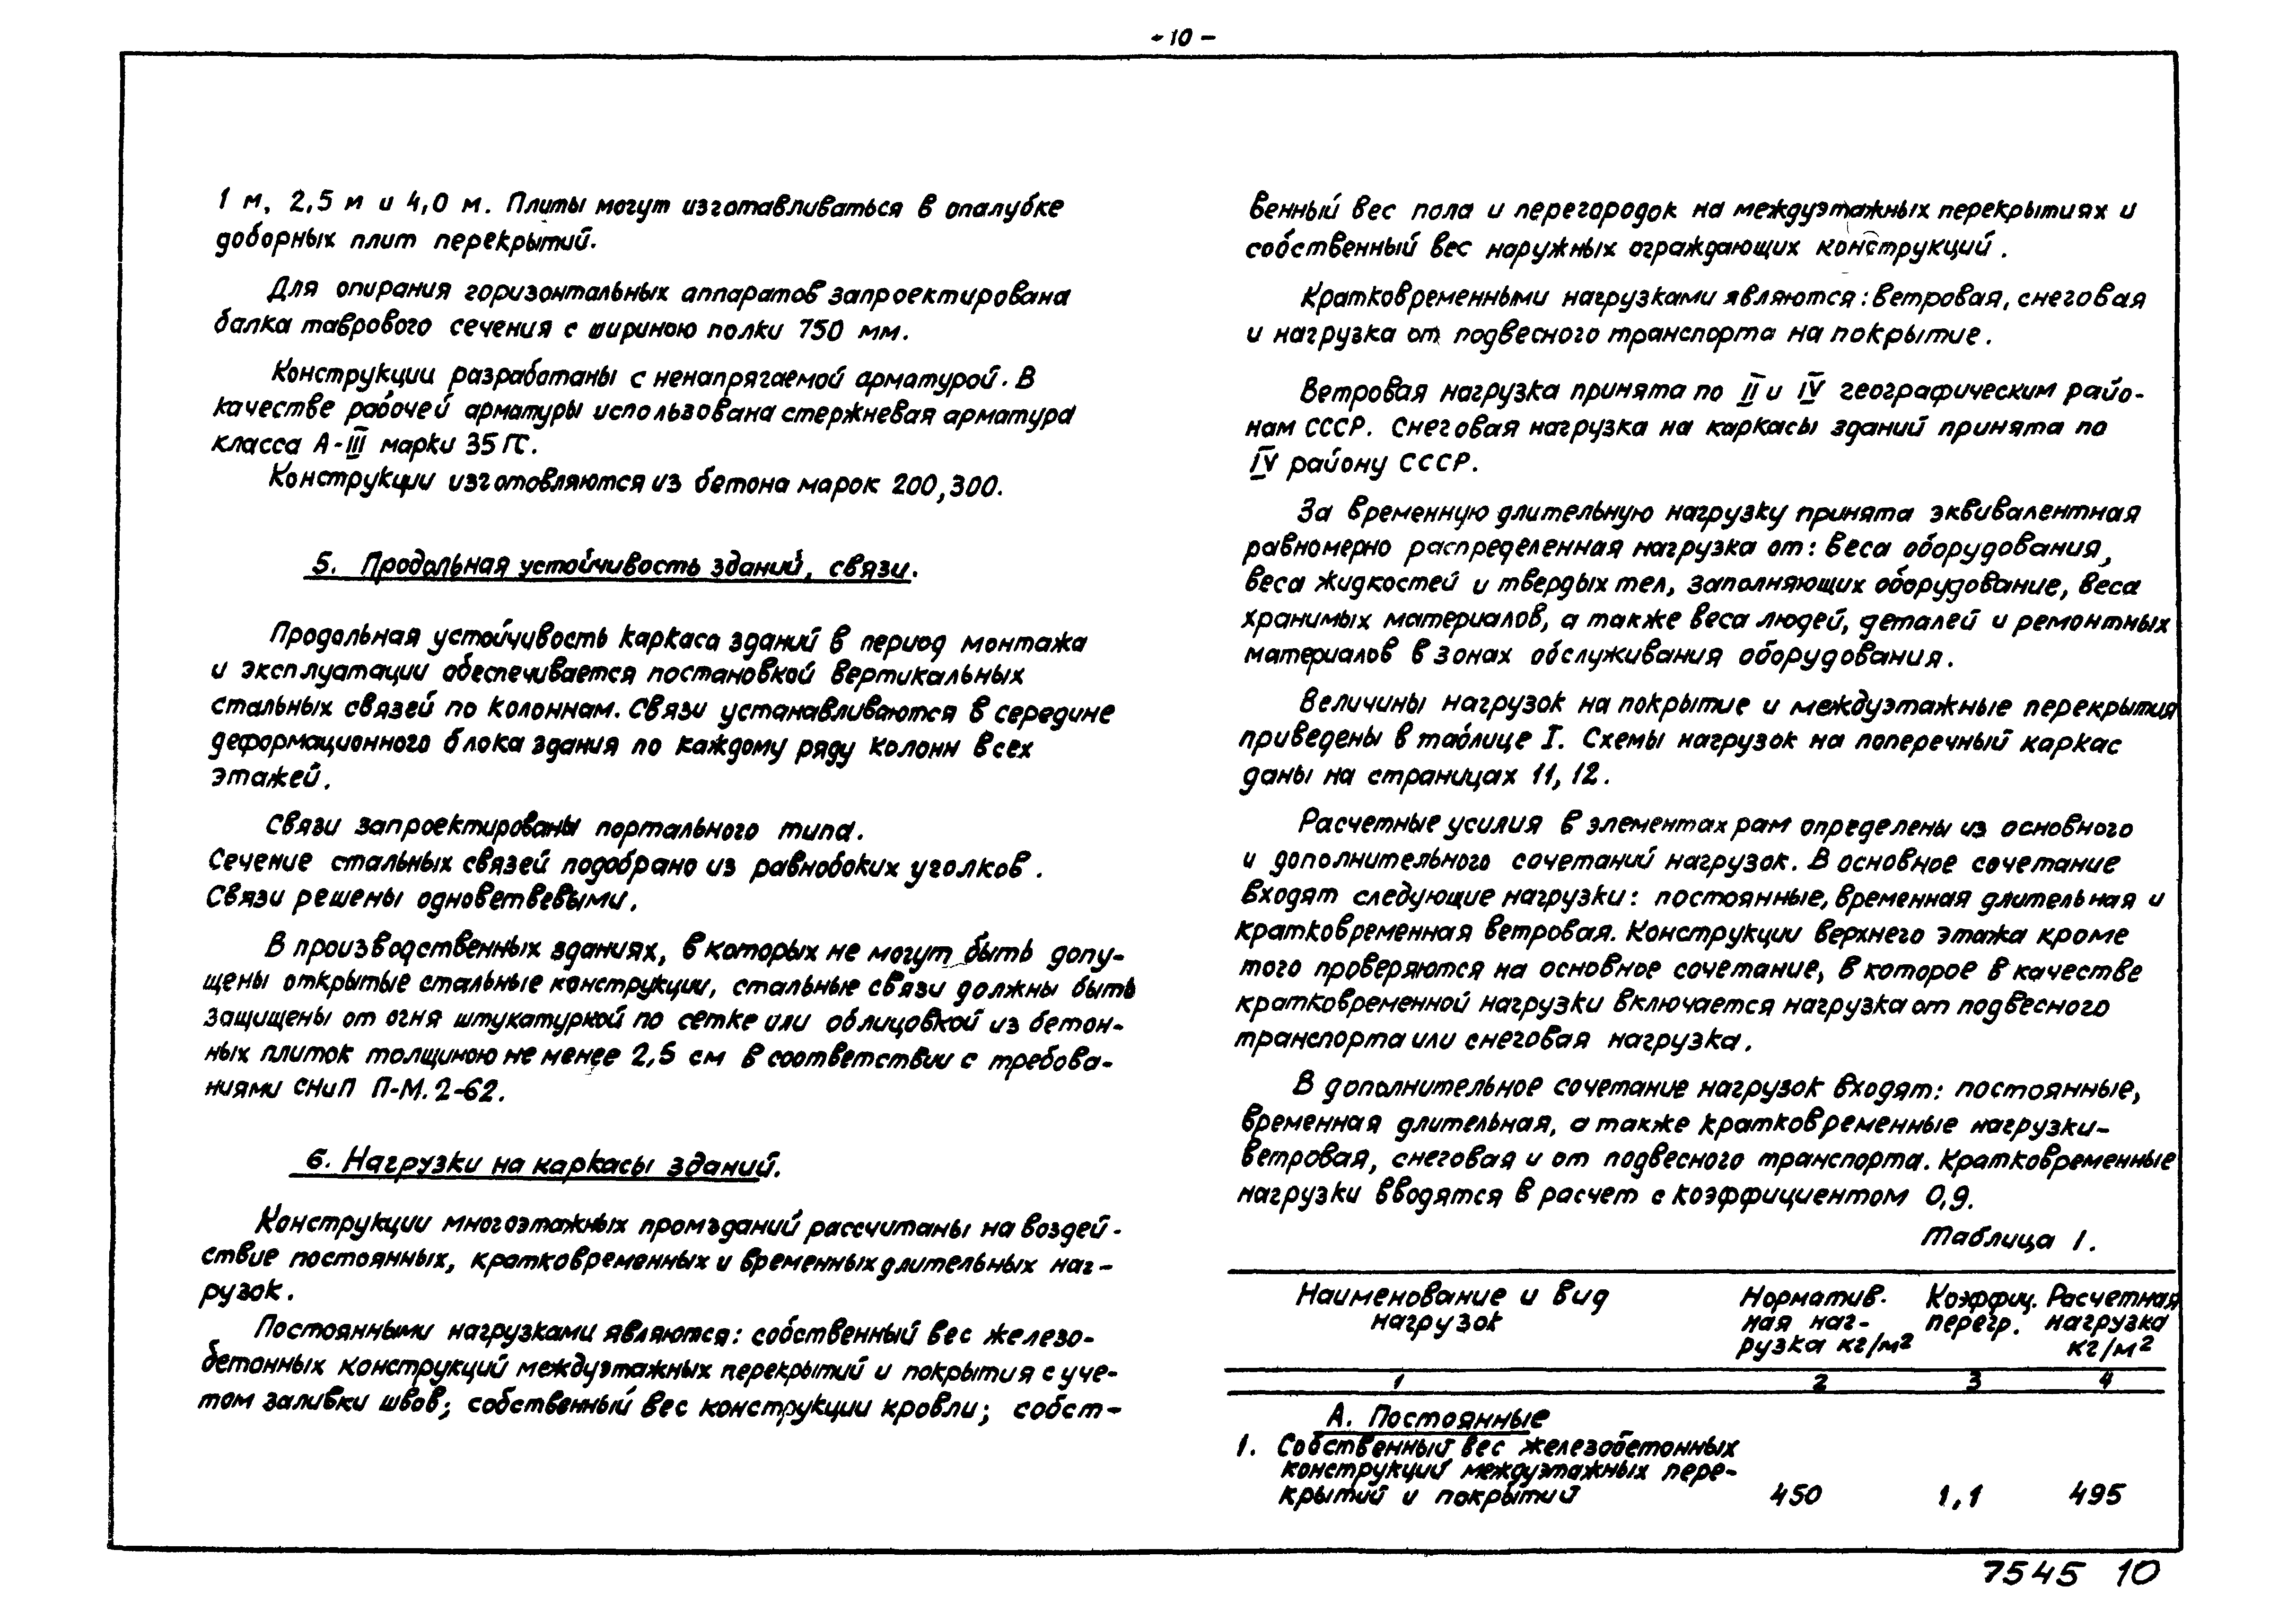 - 10 -
1 м, 2,5 м и 4,0 м. Плиты могут изготавливаться в опалубке
доборных плит перекрытий.
Для опирания горизонтальных аппаратов запроектирована
балка таврового сечения с шириною полки 750 мм.
Конструкции разработаны с ненапрягаемой арматурой. В
качестве рабочей арматуры использована стержневая арматура
класса А-III марки 35ГС.
Конструкции изготовляются из бетона марок 200, 300.
5. Продольная устойчивость зданий, связи.
Продольная устойчивость каркаса зданий в период монтажа
и эксплуатации обеспечивается постановкой вертикальных
стальных связей по колоннам. Связи устанавливаются в середине
деформационного блока здания по каждому ряду колонн всех
этажей.
Связи запроектированы портального типа.
Сечение стальных связей подобрано из равнобоких уголков.
Связи решены одноветвевыми.
В производственных зданиях, в которых не могут быть допу-
щены открытые стальные конструкции, стальные связи должны быть
защищены от огня штукатуркой по сетке или облицовкой из бетон-
ных плиток толщиною не менее 2,5 см в соответствии с требова-
ниями СНиП П-М. 2-62.
6. Нагрузки на каркасы зданий.
Конструкции многоэтажных промзданий рассчитаны на воздей-
ствие постоянных, кратковременных и временных длительных наг-
рузок.
Постоянными нагрузками являются: собственный вес железо-
бетонных конструкций междуэтажных перекрытий и покрытия с уче-
том заливки швов; собственный вес конструкции кровли; собст-
венный вес пола и перегородок на междуэтажных перекрытиях и
собственный вес наружных ограждающих конструкций.
Кратковременными нагрузками являются: ветровая, снеговая
и нагрузка от подвесного транспорта на покрытие.
Ветровая нагрузка принята по II и IV географическим райо-
нам СССР. Снеговая нагрузка на каркасы зданий принята по
IV району СССР.
За временную длительную нагрузку принята эквивалентная
равномерно распределенная нагрузка от: веса оборудования,
веса жидкостей и твердых тел, заполняющих оборудование, веса
хранимых материалов, а также веса людей, деталей и ремонтных
материалов в зонах обслуживания оборудования.
Величины нагрузок на покрытие и междуэтажные перекрытия
приведены в таблице I. Схемы нагрузок на поперечный каркас
даны на страницах 11, 12.
Расчетные усилия в элементах рам определены из основного
и дополнительного сочетаний нагрузок. В основное сочетание
входят следующие нагрузки: постоянные, временная длительная и
кратковременная ветровая. Конструкции верхнего этажа кроме
того проверяются на основное сочетание, в которое в качестве
кратковременной нагрузки включается нагрузка от подвесного
транспорта или снеговая нагрузка.
В дополнительное сочетание нагрузок входят: постоянные,
временная длительная, а также кратковременные нагрузки-
ветровая, снеговая и от подвесного транспорта. Кратковременные
нагрузки вводятся в расчет с коэффициентом 0,9.
Таблица 1.
Наименование и вид Норматив. Коэффиц. Расчетная
нагрузок ная наг- перегр. нагрузка
рузка кг/м² кг/м²
1 2 3 4
А. Постоянные
1. Собственный вес железобетонных
конструкций междуэтажных пере-
крытий и покрытий 450 1,1 495
7545 10